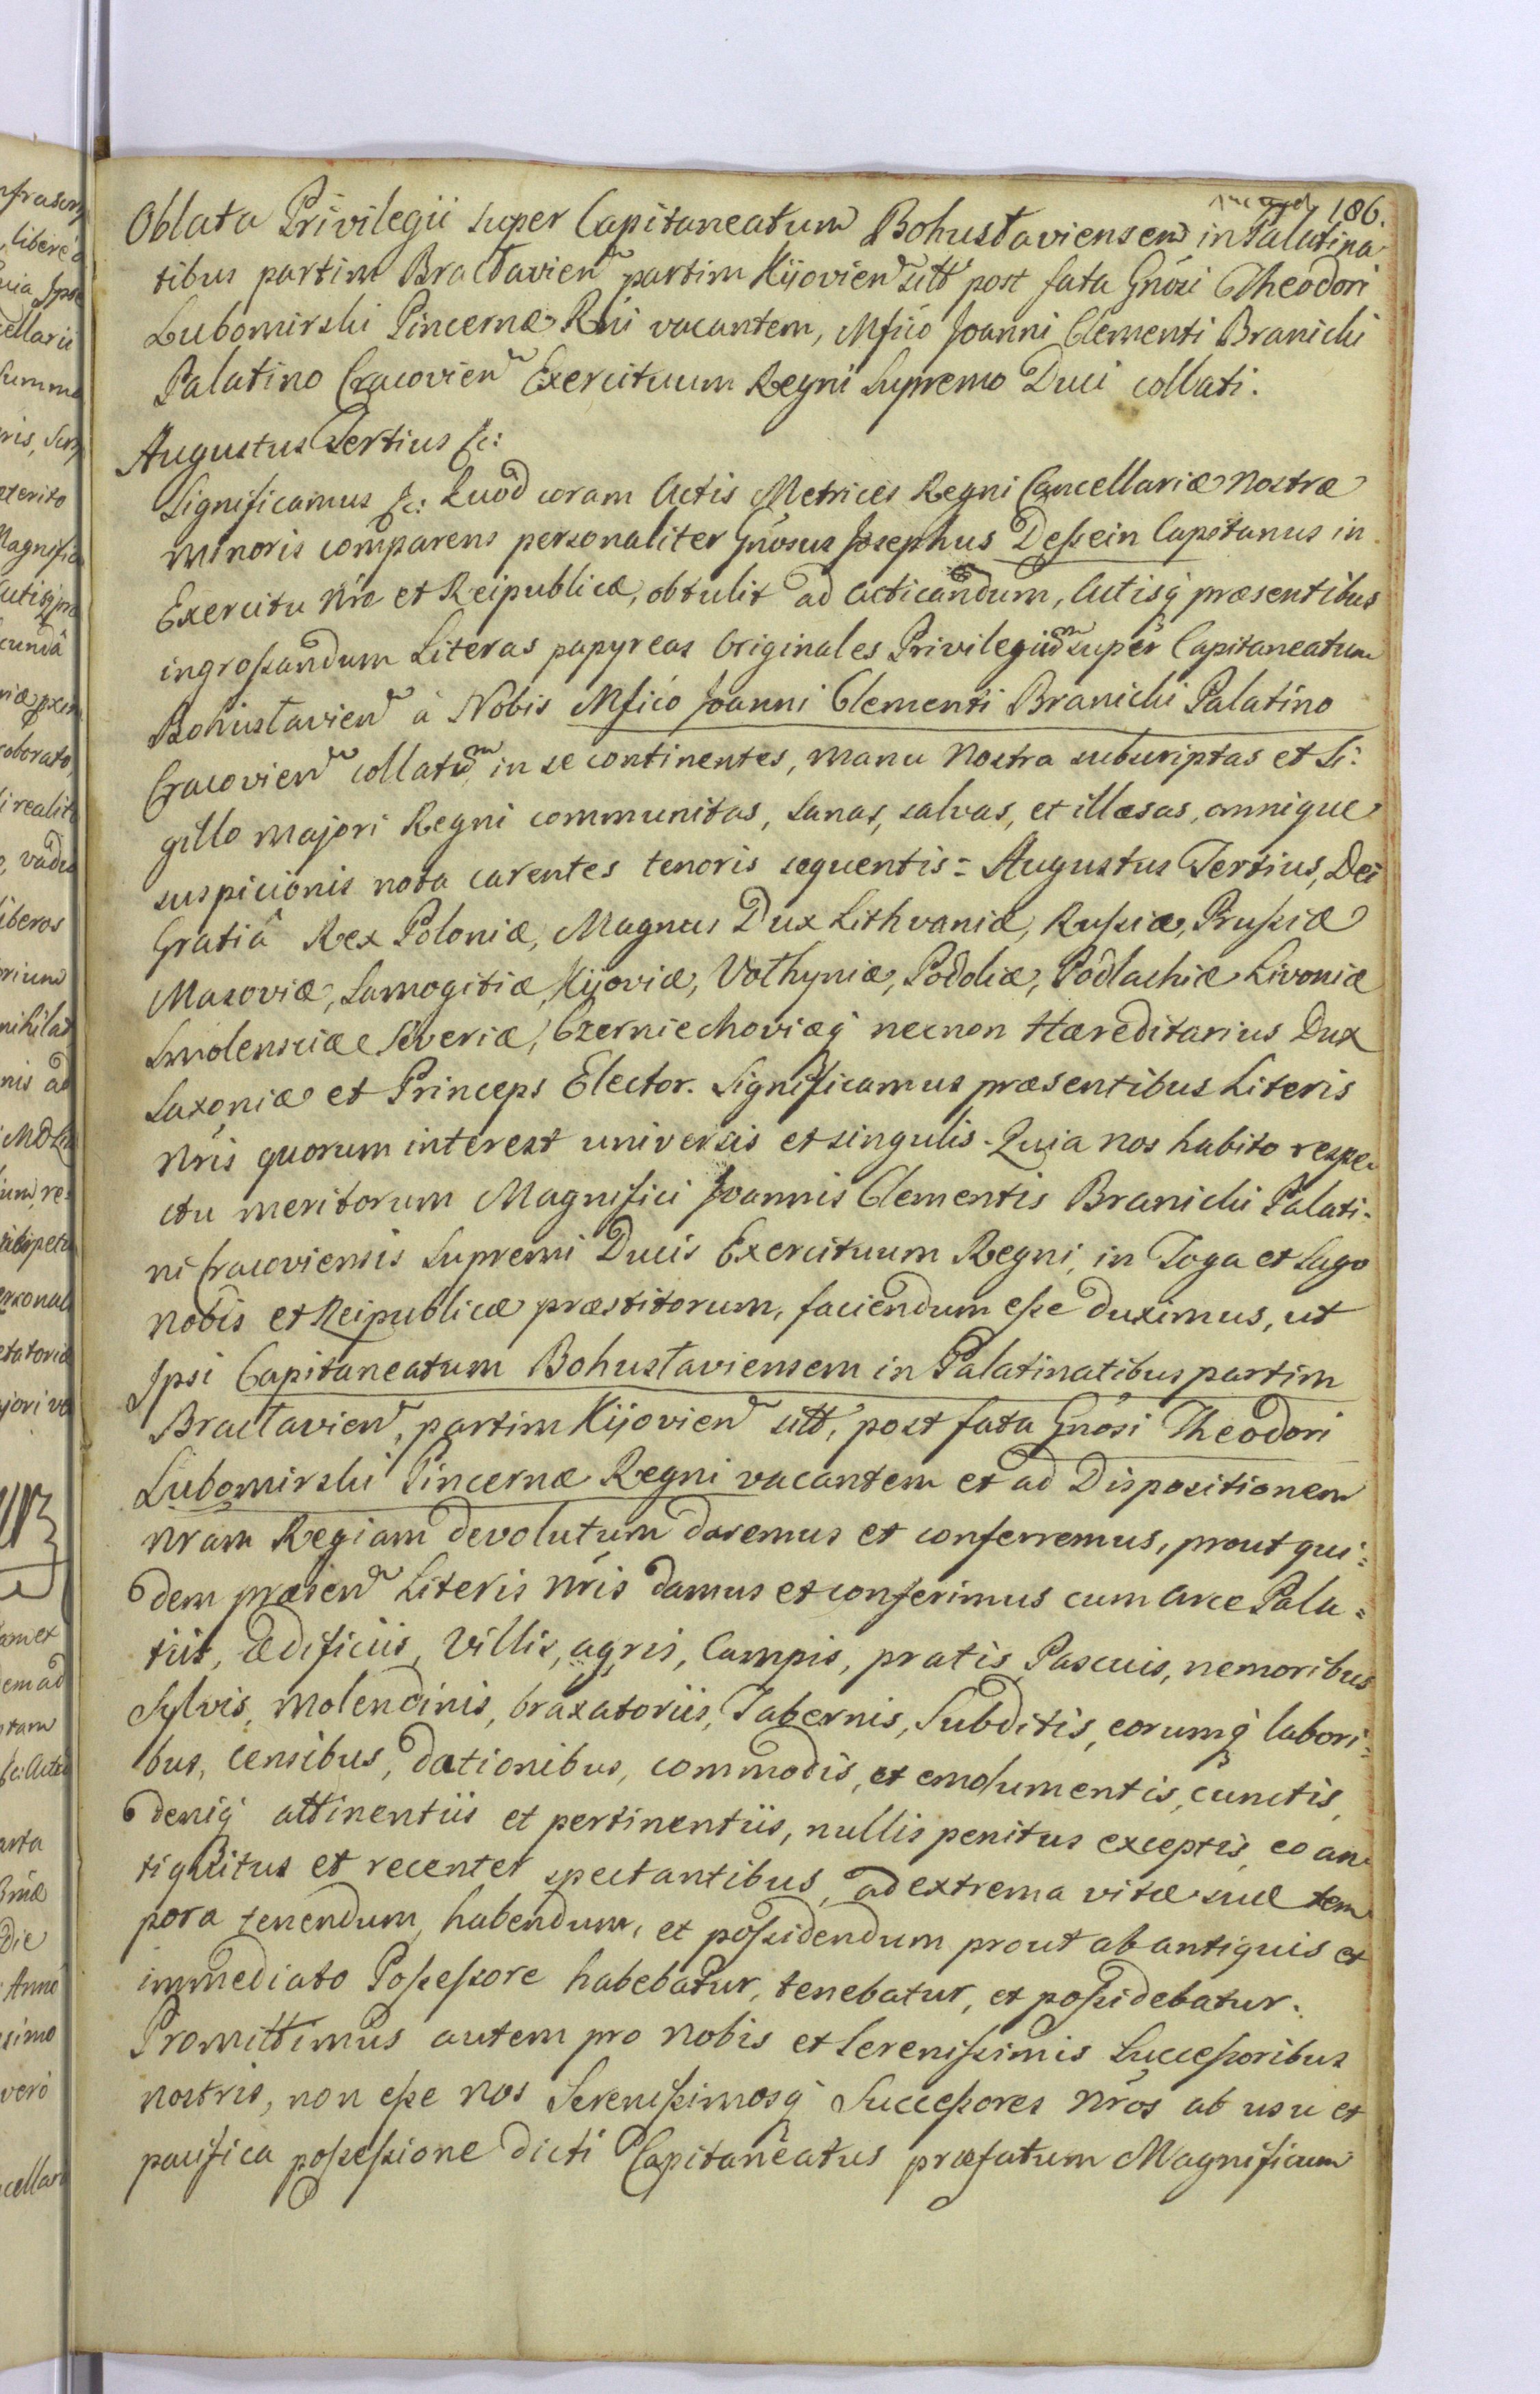 186.
Oblata Privilegii super Capitaneatum Bohuslaviensem in Palatina
tibus partim Braclavien partim Kijovien sitt post fata Gnosi Theodori
Lubomirski Pincernæ Rni vacantem, Mfico Joanni Clementi Branicki
Palatino Cracovien Exercituum Regni Supremo Duci collati.
Augustus Tertius &c:
Significamus &c: Quod coram Actis Metrices Regni Cancellariæ Nostræ
Minoris comparens personaliter Gnosus Josephus Dessein Capitanus in
Exercitu Nro et Reipublicæ, obtulit ad acticandum, Actisq præsentibus
ingrossandum Literas papyreas Originales Privilegium super Capitaneatum
Bohuslavien à Nobis Mfico Joanni Clementi Branicki Palatino
Cracovien collatum in se continentes, manu Nostra subscriptas et Si:
gillo majori Regni communitas, sanas, salvas, et illæsas, omnique
suspicionis nota carentes tenoris sequentis = Augustus Tertius, Dei
Gratiâ Rex Poloniæ, Magnus Dux Lithvaniæ, Russiæ, Prussiæ
Masoviæ, Samogitiæ, Kijoviæ, Volhyniæ, Podoliæ, Podlachiæ Livoniæ
Smolensciæ Severiæ, Czerniechoviæq necnon Hæreditarius Dux
Saxoniæ et Princeps Elector. Significamus præsentibus Literis
Nris quorum interest universis et singulis. Quia nos habito respe
ctu meritorum Magnifici Joannis Clementis Branicki Palati-
ni Cracoviensis Supremi Ducis Exercituum Regni, in Toga et Sago
nobis et Reipublicæ præstitorum, faciendum esse duximus, ut
Ipsi Capitaneatum Bohuslaviensem in Palatinatibus partim
Braclavien, partim Kijovien sitt, post fata Gnosi Theodori
Lubomirski Pincernæ Regni vacantem et ad Dispositionem
Nram Regiam devolutum daremus et conferremus, prout qui:
dem præsen Literis Nris damus et conferimus cum Arce Pala=
tiis, Ædificiis, Villis, agris, Campis, pratis, Pascuis, nemoribus
Sylvis, Molendinis, braxatoriis, Tabernis, Subditis, eorumq labori:
bus, Censibus, dationibus, commodis, et emolumentis, cunctis,
deniq attinentiis et pertinentiis, nullis penitus exceptis, eo an
tiquitus et recenter spectantibus, ad extrema vitæ suæ tem
pora tenendum, habendum, et possidendum prout ab antiquis et
immediato Possessore habebatur, tenebatur, et possidebatur.
Promittimus autem pro Nobis et Serenissimis Successoribus
nostris, non esse Nos Serenissimosq Successores Nros ab usu et
pacifica possessione dicti Capitaneatus præfatum Magnificum